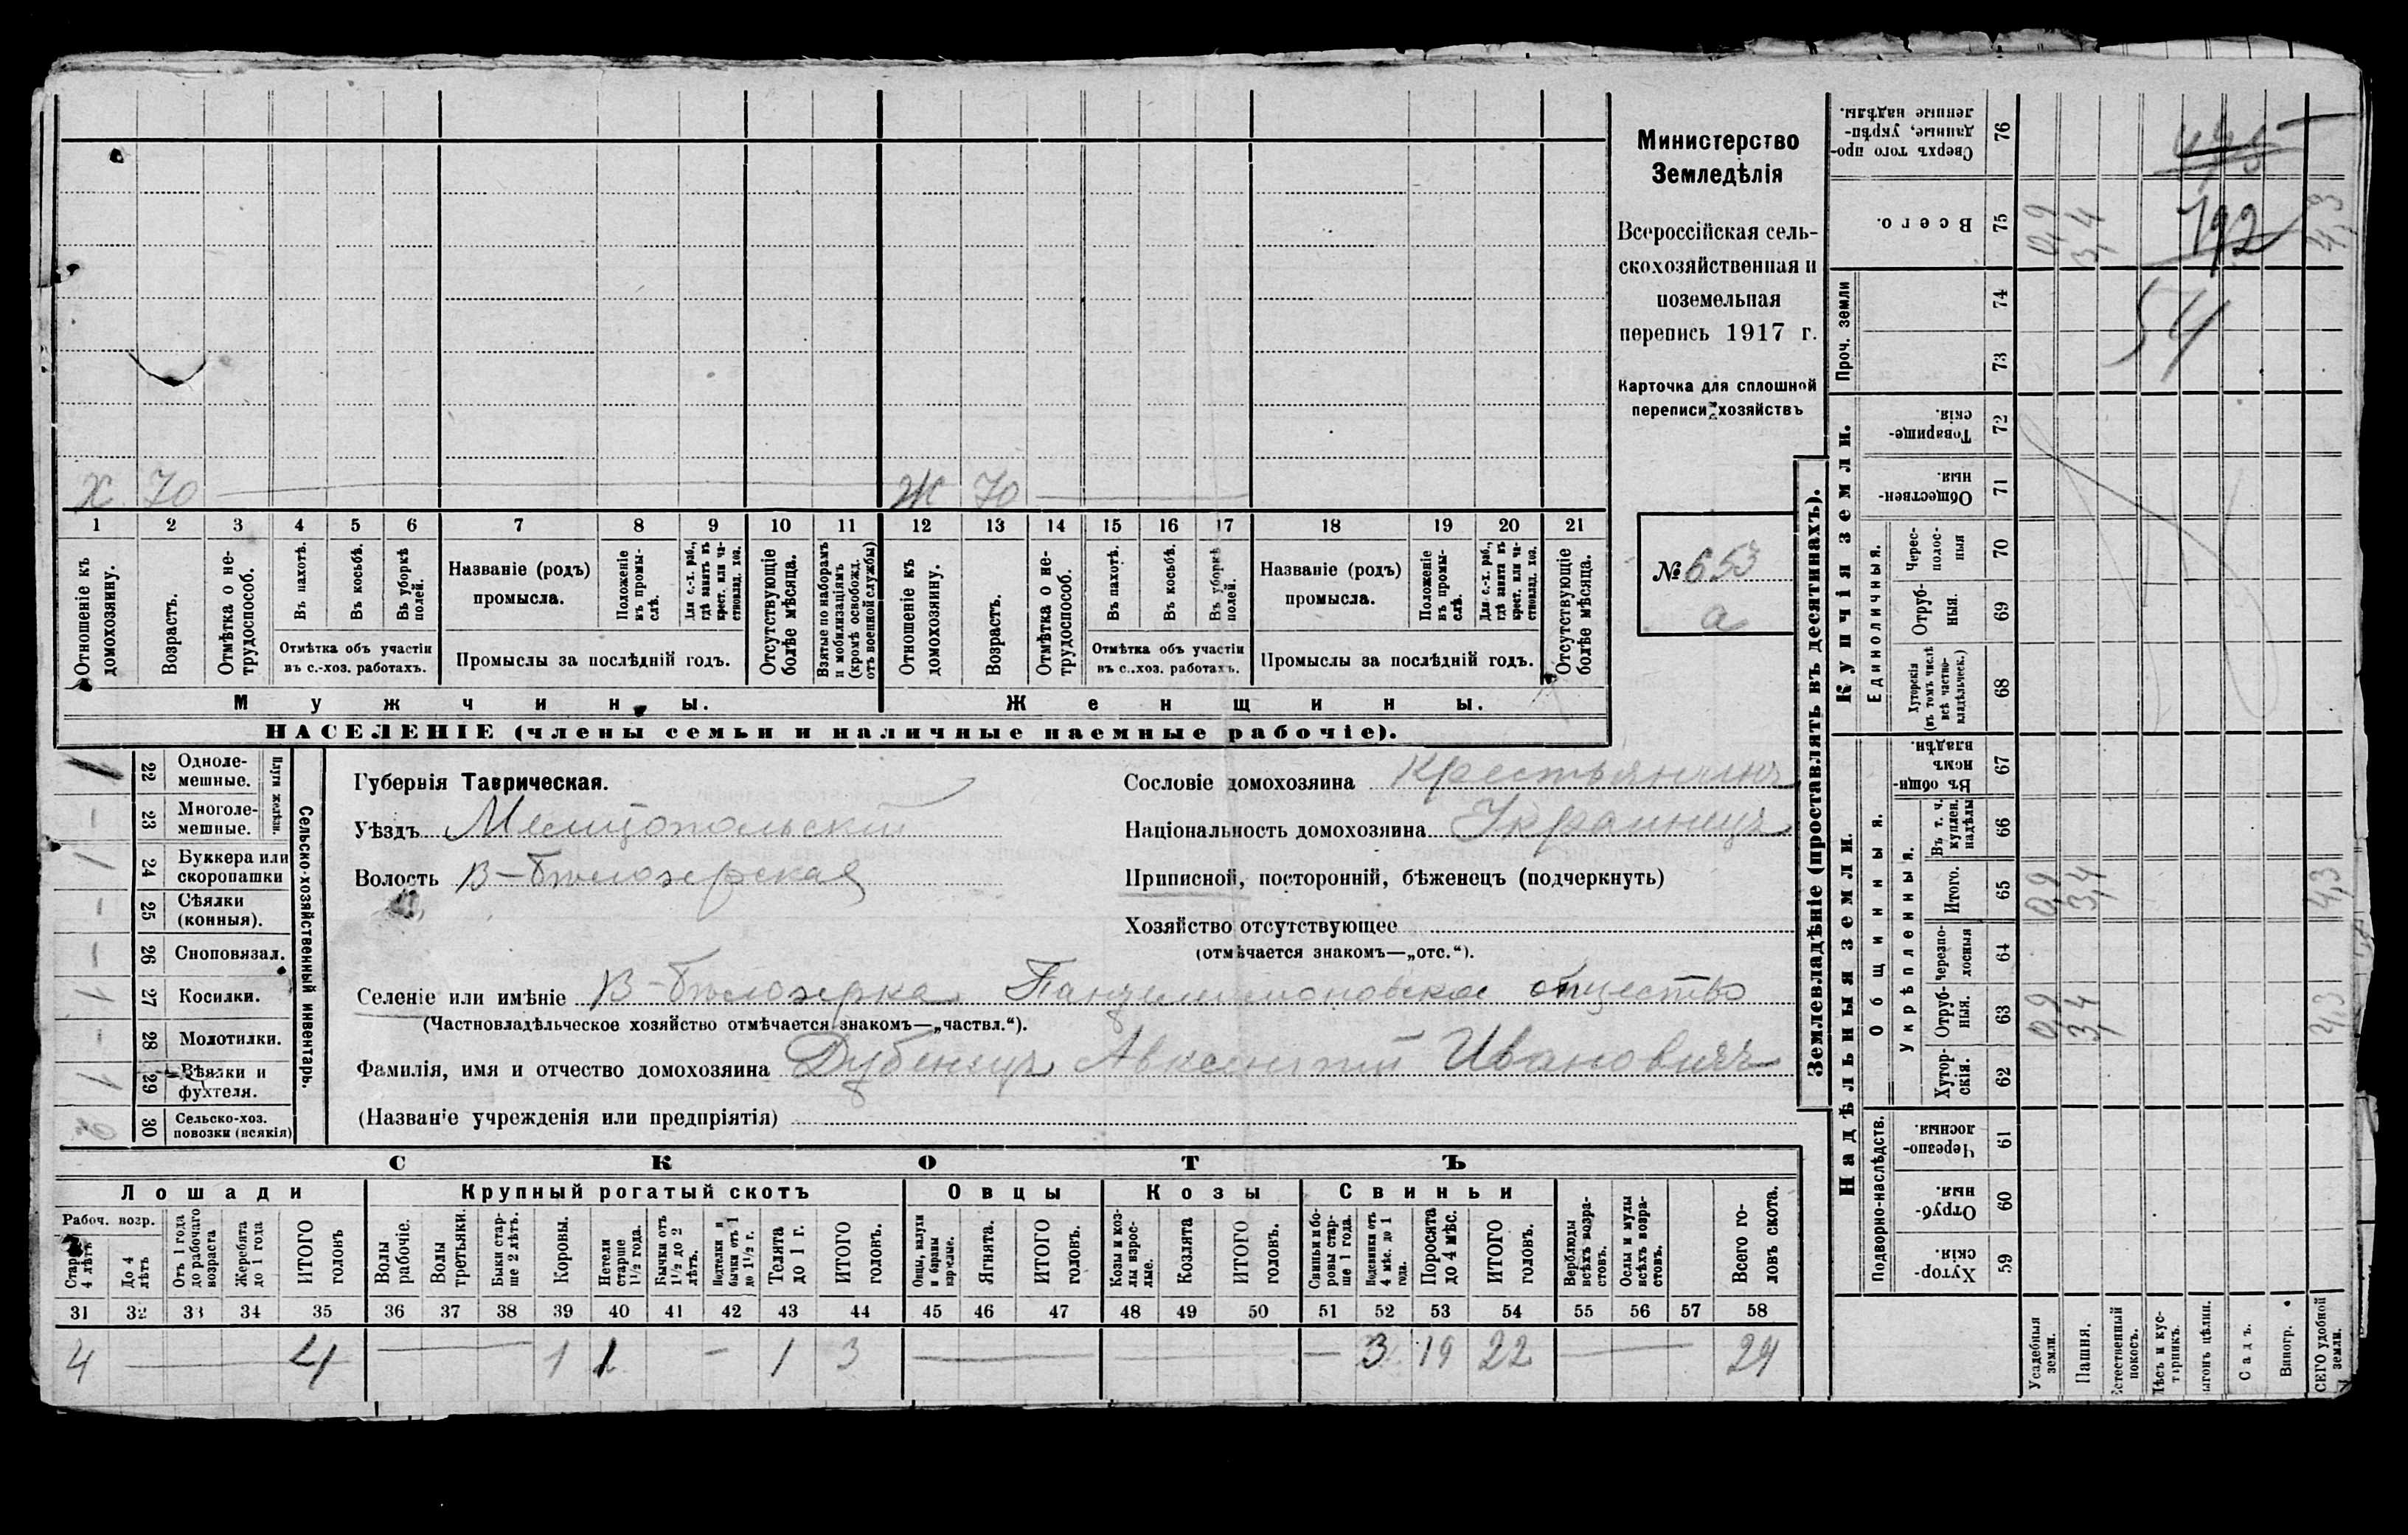 Министерство
Земледѣлія
Всероссійская сель-
скохозяйственная и
поземельная
перепись 1917 г.
Карточка для сплошной
переписи хозяйствъ
№ 653
а
Х 70 Ж 70
1 2 3 4 5 6 7 8 9 10 11 12 13 14 15 16 17 18 19 20 21
Отношеніе къ домохозяину.
Возрастъ.
Отмѣтка о не-трудоспособ.
Въ пахотѣ.
Въ косьбѣ.
Въ уборкѣ полей.
Отмѣтка объ участіи
въ с.-хоз. работахъ.
Названіе (родъ)
промысла.
Положеніе въ промы-слѣ.
Для с.-х. раб., гдѣ занятъ въ крест. или ча-стновлад. хоз.
Промыслы за послѣдній годъ.
Отсутствующіе болѣе мѣсяца.
Взятые по наборамъ и мобилизаціямъ (кромѣ освобожд. отъ военной службы)
Отношеніе къ домохозяину.
Возрастъ.
Отмѣтка о не-трудоспособ.
Въ пахотѣ.
Въ косьбѣ.
Въ уборкѣ полей.
Отмѣтка объ участіи
въ с.-хоз. работахъ.
Названіе (родъ)
промысла.
Положеніе въ промы-слѣ.
Для с.-х. раб., гдѣ занята въ крест. или ча-стновлад. хоз.
Промыслы за послѣдній годъ.
Отсутствующіе болѣе мѣсяца.
Мужчины. Женщины.
НАСЕЛЕНІЕ (члены семьи и наличные наемные рабочіе).
Сельско-хозяйственный инвентарь.
Плуги желѣзн.
1 22 Одноле-мешные.
– 23 Многоле-мешные.
1 24 Буккера или скоропашки
– 25 Сѣялки (конныя).
– 26 Сноповязал.
1 27 Косилки.
– 28 Молотилки.
1 29 Вѣялки и фухтеля.
2 30 Сельско-хоз. повозки (всякія)
Губернія Таврическая.
Уѣздъ Мелитопольскій
Волость В-Бѣлозерская
Сословіе домохозяина Крестьянинъ
Національность домохозяина Украинецъ
Приписной, посторонній, бѣженецъ (подчеркнуть)
Хозяйство отсутствующее
(отмѣчается знакомъ—„отс.“).
Селеніе или имѣніе В-Бѣлозерка Пантелимоновское общество
(Частновладѣльческое хозяйство отмѣчается знакомъ—„частвл.“).
Фамилія, имя и отчество домохозяина Дубенецъ Авксентій Ивановичъ
(Названіе учрежденія или предпріятія)
СКОТЪ
Лошади Крупный рогатый скотъ Овцы Козы Свиньи
Рабоч. возр.
Старш. 4 лѣтъ
До 4 лѣтъ
Отъ 1 года до рабочаго возраста
Жеребята до 1 года
ИТОГО головъ
Волы рабочіе.
Волы третьяки.
Быки стар-ше 2 лѣтъ.
Коровы.
Нетели старше 1 1/2 года.
Бычки отъ 1 1/2 до 2 лѣтъ.
Подтелки и бычки отъ 1 до 1 1/2 г.
Телята до 1 г.
ИТОГО головъ.
Овцы, валухи и бараны взрослые.
Ягнята.
ИТОГО головъ.
Козы и коз-лы взрос-лые.
Козлята
ИТОГО головъ.
Свиньи и бо-ровы стар-ше 1 года.
Подсвинки отъ 4 мѣс. до 1 года.
Поросята до 4 мѣс.
ИТОГО головъ.
Верблюды всѣхъ возра-стовъ.
Ослы и мулы всѣхъ возра-стовъ.
Всего го-ловъ скота.
31 32 33 34 35 36 37 38 39 40 41 42 43 44 45 46 47 48 49 50 51 52 53 54 55 56 57 58
4 4 1 1 – 1 3 – 3 19 22 29
Землевладѣніе (проставлять въ десятинахъ).
Надѣльныя земли. Купчія земли. Проч. земли
Подворно-наслѣдств.
Общинныя.
Укрѣпленныя.
Единоличныя.
59 Хутор-скія
60 Отруб-ныя.
61 Черезпо-лосныя.
62 Хутор-скія.
63 Отруб-ныя.
64 Черезпо-лосныя
65 Итого.
66 Въ т. ч. куплен. надѣлы
67 Въ общи-номъ владѣн.
68 Хуторскія (въ томъ числѣ всѣ частно-владѣльческ.)
69 Отруб-ныя.
70 Черес-полос-ныя
71 Обществен-ныя.
72 Товарище-скія.
73
74
75 Всего.
76 Сверхъ того про-данные, укрѣп-ленные надѣлы.
Усадебныя земли.
Пашня.
Естественный покосъ.
Лѣсъ и кус-тарникъ.
Выгонъ цѣлин.
Садъ.
Виногр.
ВСЕГО удобной земли.
0,9 3,4 4,3
0,9 3,4 4,3
0,9 3,4 4,3
192
54